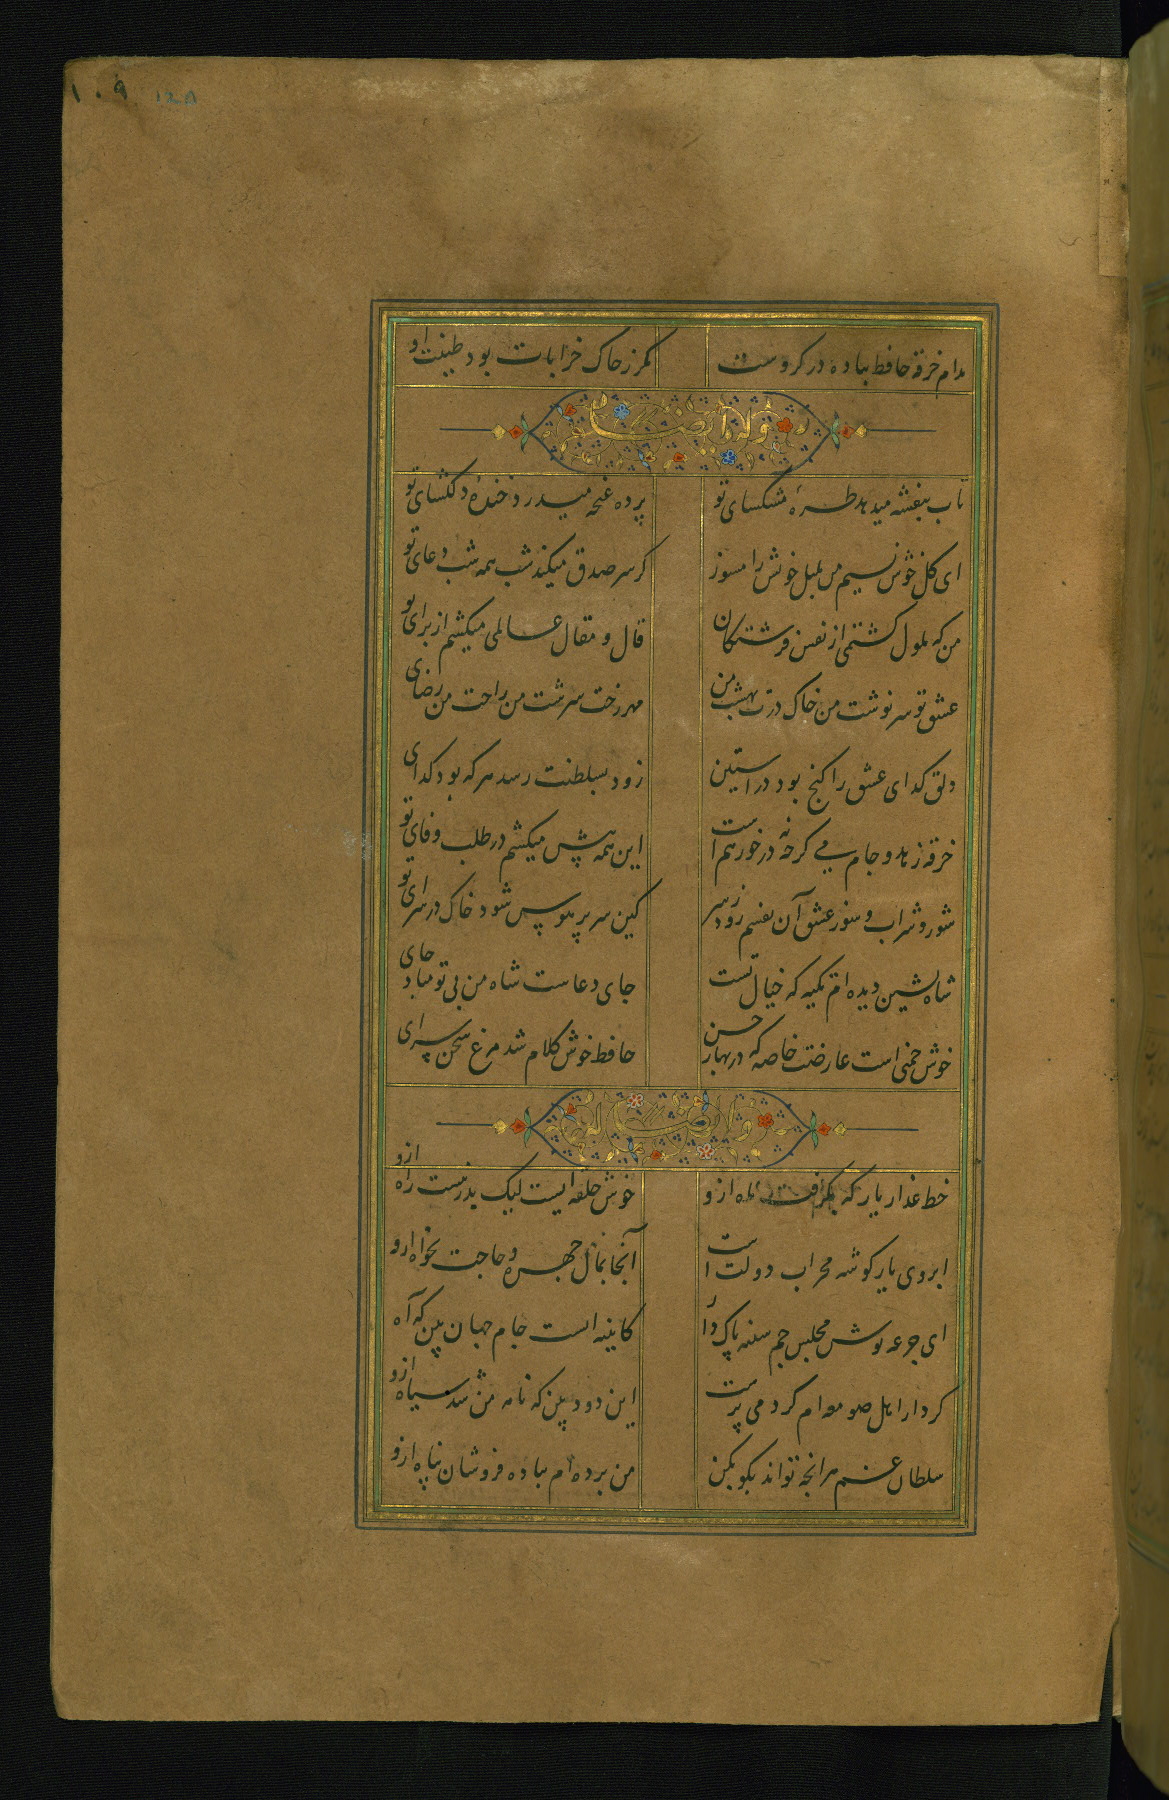 ۱۰۹ ۱۲۸
مدام خرقه حافظ بباده در کروست مکر زخاک خرابات بود طینت او
وله ایضا
تاب بنفشه میدهد طره مشکسای تو پرده غنچه میدرد خنده دلکشای تو
ای کل خوش نسیم من بلبل خوش را مسوز کز سر صدق میکند شب همه شب دعای تو
من که ملول کشتمی از نفس فرشتکان قال و مقال عالمی میکشم از برای تو
عشق تو سرنوشت من خاک درت بهشت من مهر رخت سرشت من راحت من رضای
دلق کدای عشق را کنج بود در استین زود بسلطنت رسد هر که بود کدای
خرقه زهد و جام می کرچه نه در خور هم است این همه نقش میکشم در طلب وفای تو
شور و شراب و سوز عشق آن نفسم رود زسر کین سر پر هوس شود خاک در سرای تو
شاه نشین دیده ام تکیه که خیال تست جای دعاست شاه من بی تو مباد جای
خوش چمنی است عارضت خاصه که در بهار حسن حافظ خوش کلام شد مرغ سخن سرای
وله ایضا
خط عذار یار که بکرفت ماه ازو خوش حلقه ایست لیک بدر نیست راه ازو
ابروی یار کوشه محراب دولت است آنجا بمال چهره و حاجت بخواه ازو
ای جرعه نوش مجلس جم سینه پاک دار کایینه است جام جهان بین که آه
کردار اهل صومعه ام کرد می پرست این دود بین که نامه من شد سیاه ازو
سلطان غم هر انچه تواند بکو بکن من برده ام بباده فروشان پناه ازو